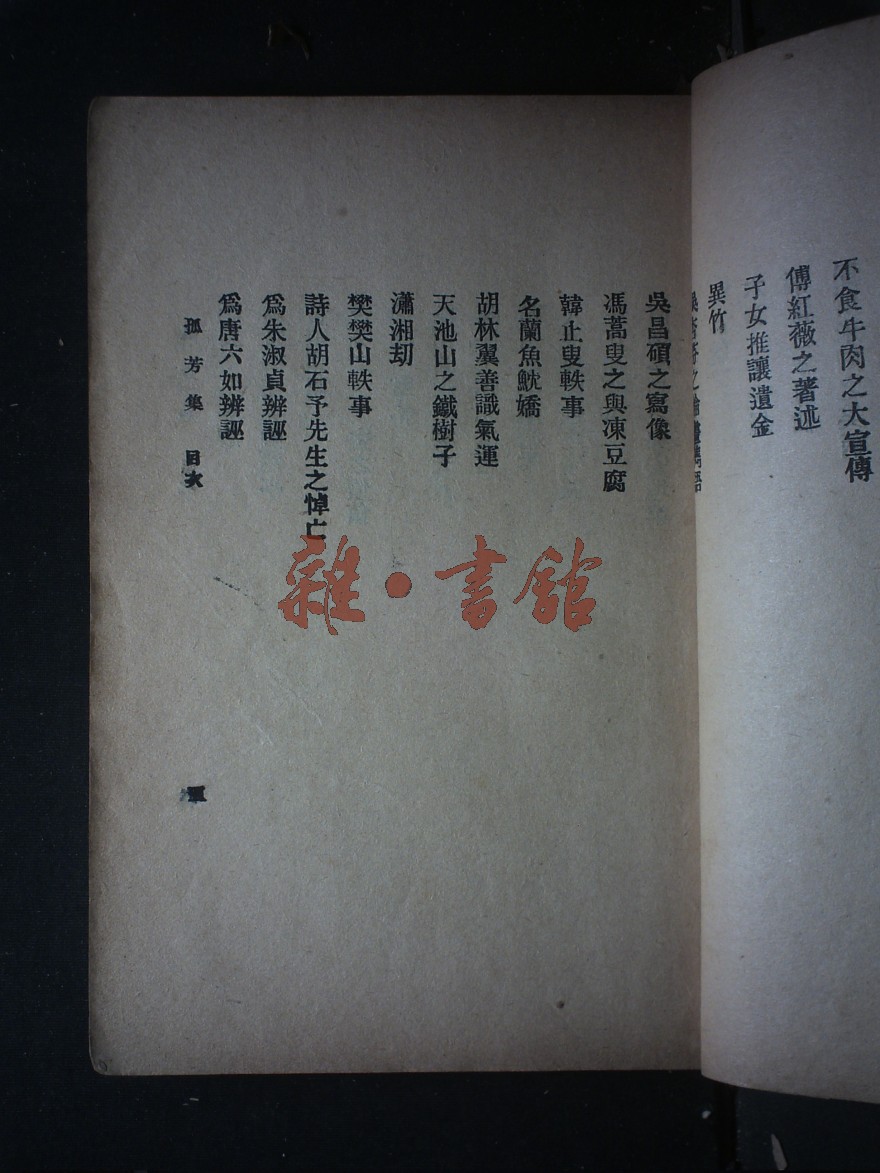 不食牛肉之大宣傳
傅紅薇之著述
子女推讓遺金
異竹
之
吳昌碩之寫像
馮蒿叟之與凍豆腐
韓止叟軼事
名蘭魚魫嬌
胡林翼善識氣運
天池山之鐵樹子
瀟湘刧
樊樊山軼事
詩人胡石予先生之悼亡
爲朱淑貞辨誣
爲唐六如辨誣
孤芳集 目次
雜·書館